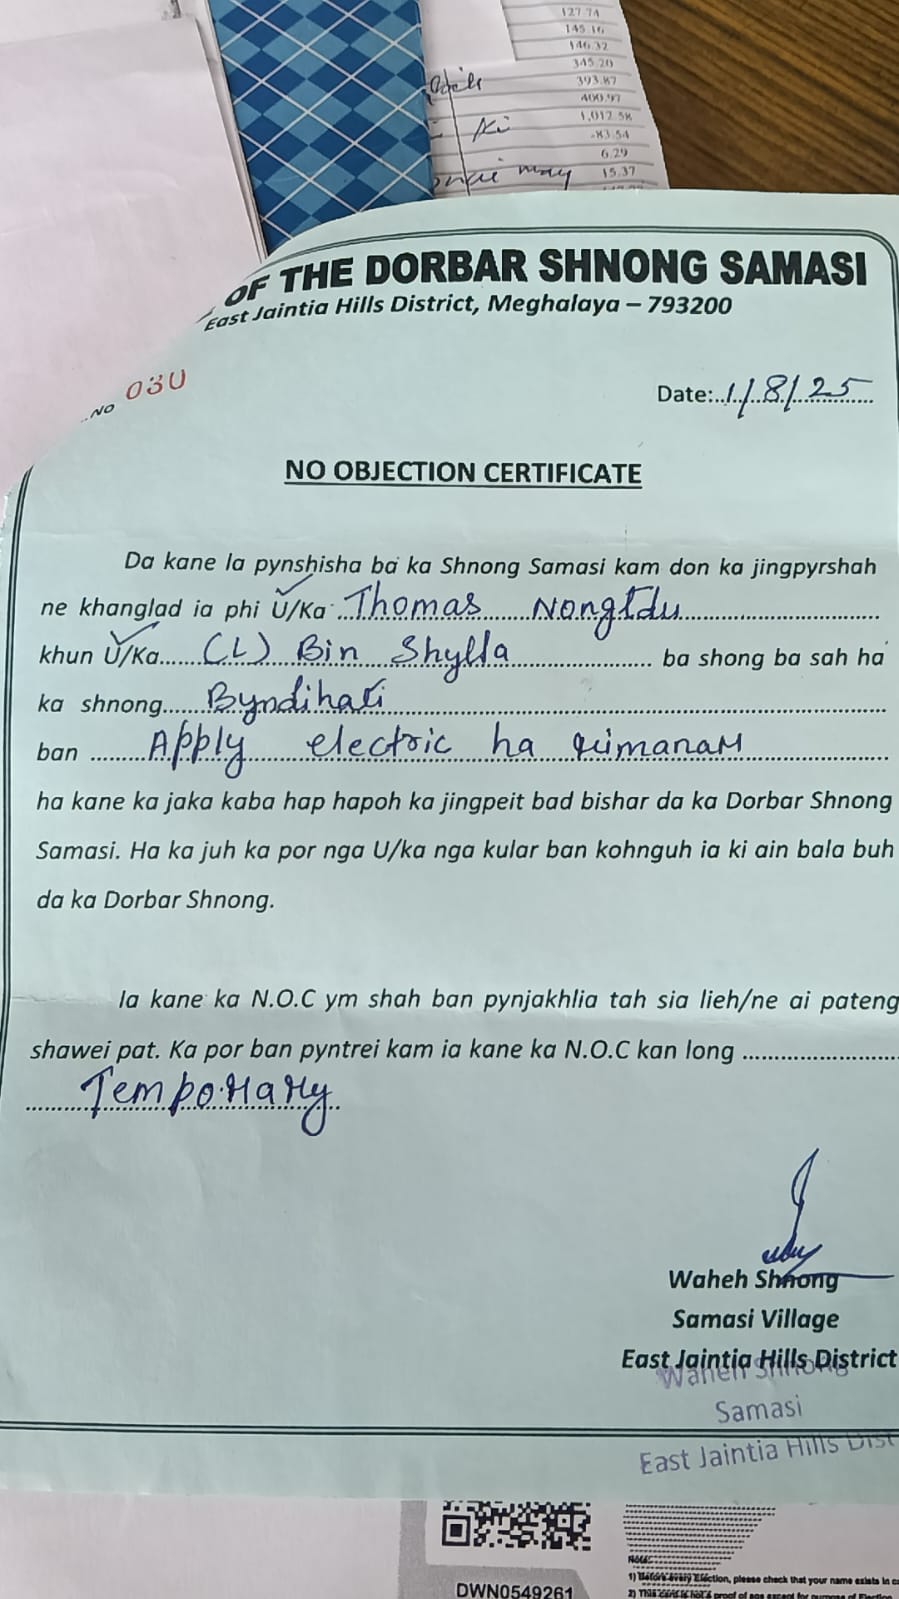 127.74
145.16
146.32
345.20
393.87
400.97
1,012.58
-83.54
6.29
15.37
ki
may
OF THE DORBAR SHNONG SAMASI
East Jaintia Hills District, Meghalaya – 793200
No 030
Date:..1/8/25
NO OBJECTION CERTIFICATE
Da kane la pynshisha ba ka Shnong Samasi kam don ka jingpyrshah
ne khanglad ia phi U/Ka Thomas Nongtdu
khun U/Ka......(L) Bin Shylla ba shong ba sah ha
ka shnong......Byndihati
ban .........Apply electric ha
ha kane ka jaka kaba hap hapoh ka jingpeit bad bishar da ka Dorbar Shnong
Samasi. Ha ka juh ka por nga U/ka nga kular ban kohnguh ia ki ain bala buh
da ka Dorbar Shnong.
Ia kane ka N.O.C ym shah ban pynjakhlia tah sia lieh/ne ai pateng
shawei pat. Ka por ban pyntrei kam ia kane ka N.O.C kan long ........................
Temporary
Waheh Shnong
Samasi Village
East Jaintia Hills District
Waheh Shnong
Samasi
East Jaintia Hills Dist
DWN0549261
Note:
1) Before every Election, please check that your name exists in
2) This card is not a proof of age except for purpose of Election